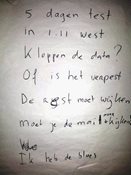 5 dagen test
In 1.11 west
Kloppen de data?
Of is het veapest
De angst moet wijken
moet je de mail kijken
Ik heb de blues